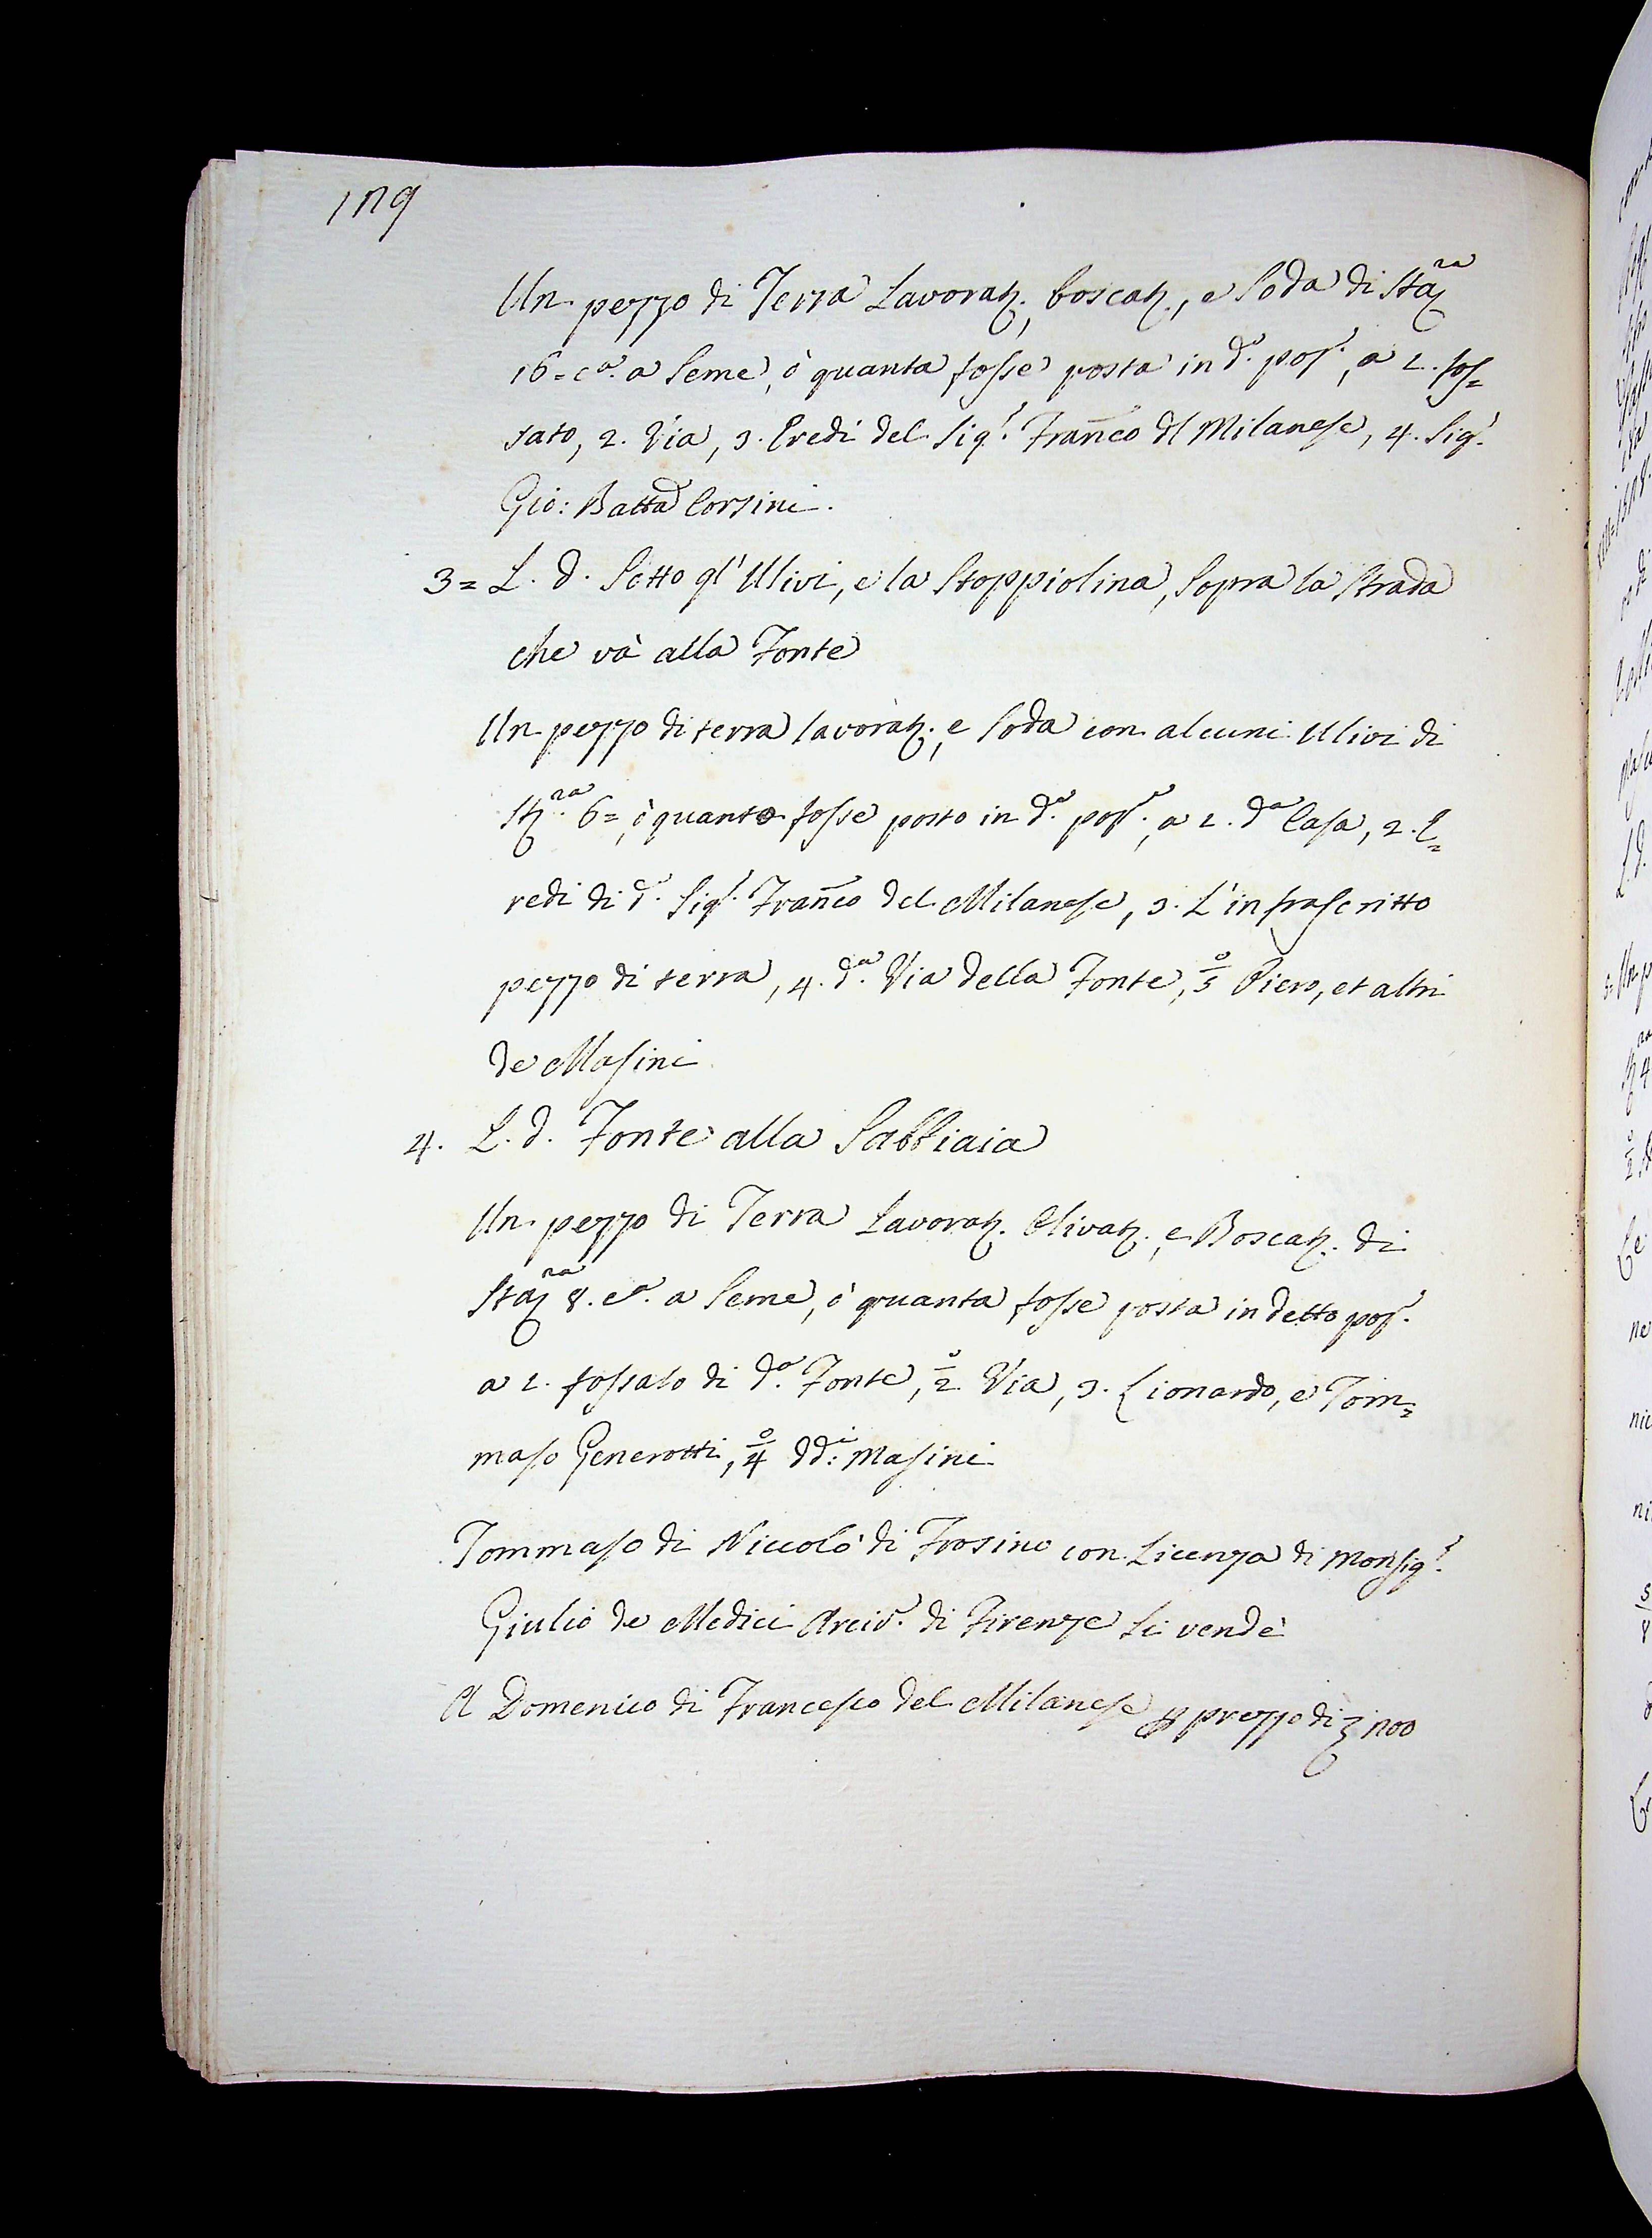 179
Un pezzo di Terra Lavorat., boscat., e Soda di Sta.ra
16= c.a a Seme, ò quanta fosse posta in d.o pop.o, a 1. fos=
sato, 2. Via, 3. Eredi del Sig.r Fran.co dl Milanese, 4. Sig.r
Gio: Batta Corsini.
3= L. d. Sotto gl'Ulivi, e la Stoppiolina, Sopra la Strada
che và alla Fonte
Un pezzo di terra lavorat., e Soda con alcuni Ulivi di
St.ra 6=, ò quanto fosse posto in d.o pop.o, a 1. d.a Casa, 2. E=
redi di d.o Sig.r Fran.co del Milanese, 3. L'infrascritto
pezzo di terra, 4. d.a Via della Fonte, 5.o Piero, et altri
de Masini
4. L. d. Fonte alla Sabbiaia
Un pezzo di Terra Lavorat. Olivat., e Boscat. di
Sta.ra 8. c.a a Seme, ò quanta fosse posta in detto pop.o
a 1. fossato di d.a Fonte, 2.o Via, 3. Lionardo, e Tom=
maso Generotti, 4.o dd.i Masini
Tommaso di Niccolò di Frosino con Licenza di Monsig.r
Giulio de Medici Arciv.o di Firenze li vendè
A Domenico di Francesco del Milanese p prezzo di 700